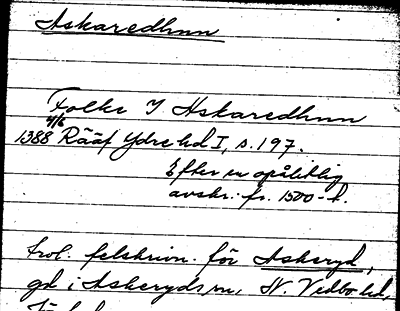 Askaredhun
Folke I Askaredhun
4/6
1388 Rääf Ydre hd I, s. 197.
Efter en opålitlig
avskr. fr. 1500-t.
trol. felskrivn. för Askeryd,
gd i Askeryds sn, N. Vedbo hd,